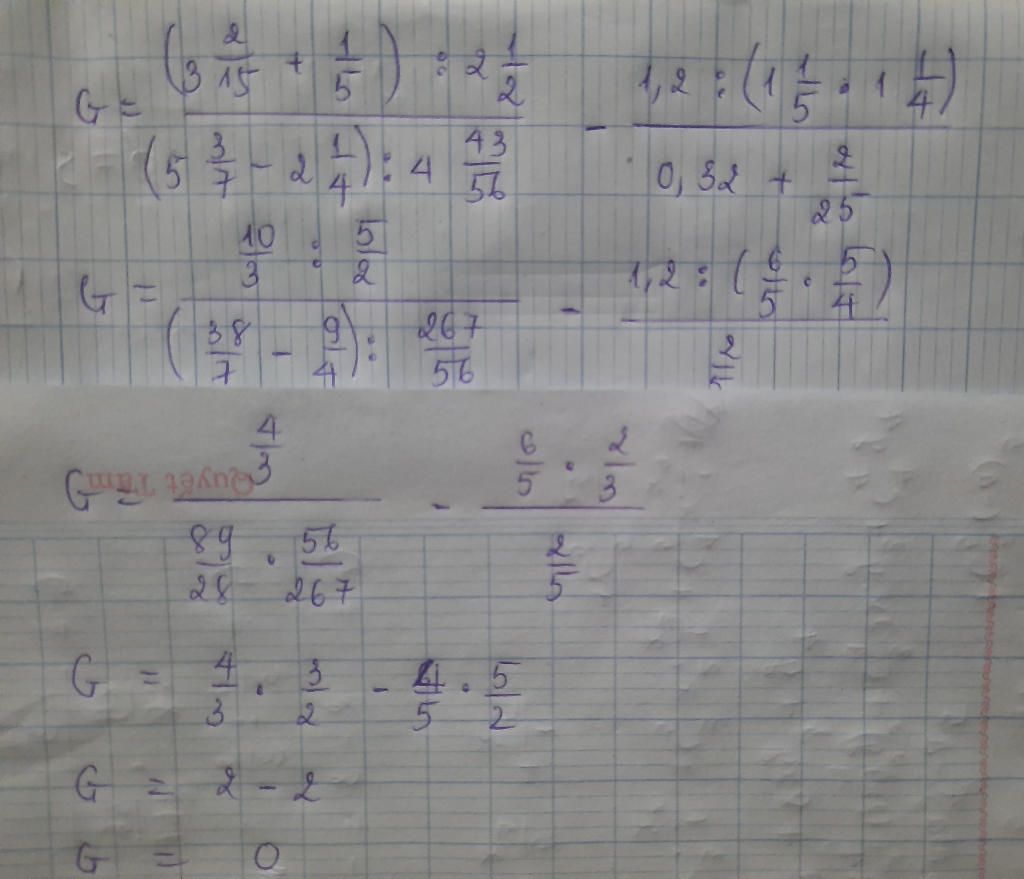 G = \frac{(3\frac{2}{15} + \frac{1}{5}) : 2\frac{1}{2}}{(5\frac{3}{7} - 2\frac{1}{4}) : 4\frac{43}{56}} - \frac{1,2 : (1\frac{1}{5} \cdot 1\frac{1}{4})}{0,32 + \frac{2}{25}}
G = \frac{\frac{10}{3} : \frac{5}{2}}{(\frac{38}{7} - \frac{9}{4}) : \frac{267}{56}} - \frac{1,2 : (\frac{6}{5} \cdot \frac{5}{4})}{\frac{2}{5}}
Quyết Tâm
G = \frac{\frac{4}{3}}{\frac{89}{28} \cdot \frac{56}{267}} - \frac{\frac{6}{5} \cdot \frac{2}{3}}{\frac{2}{5}}
G = \frac{4}{3} \cdot \frac{3}{2} - \frac{4}{5} \cdot \frac{5}{2}
G = 2 - 2
G = 0